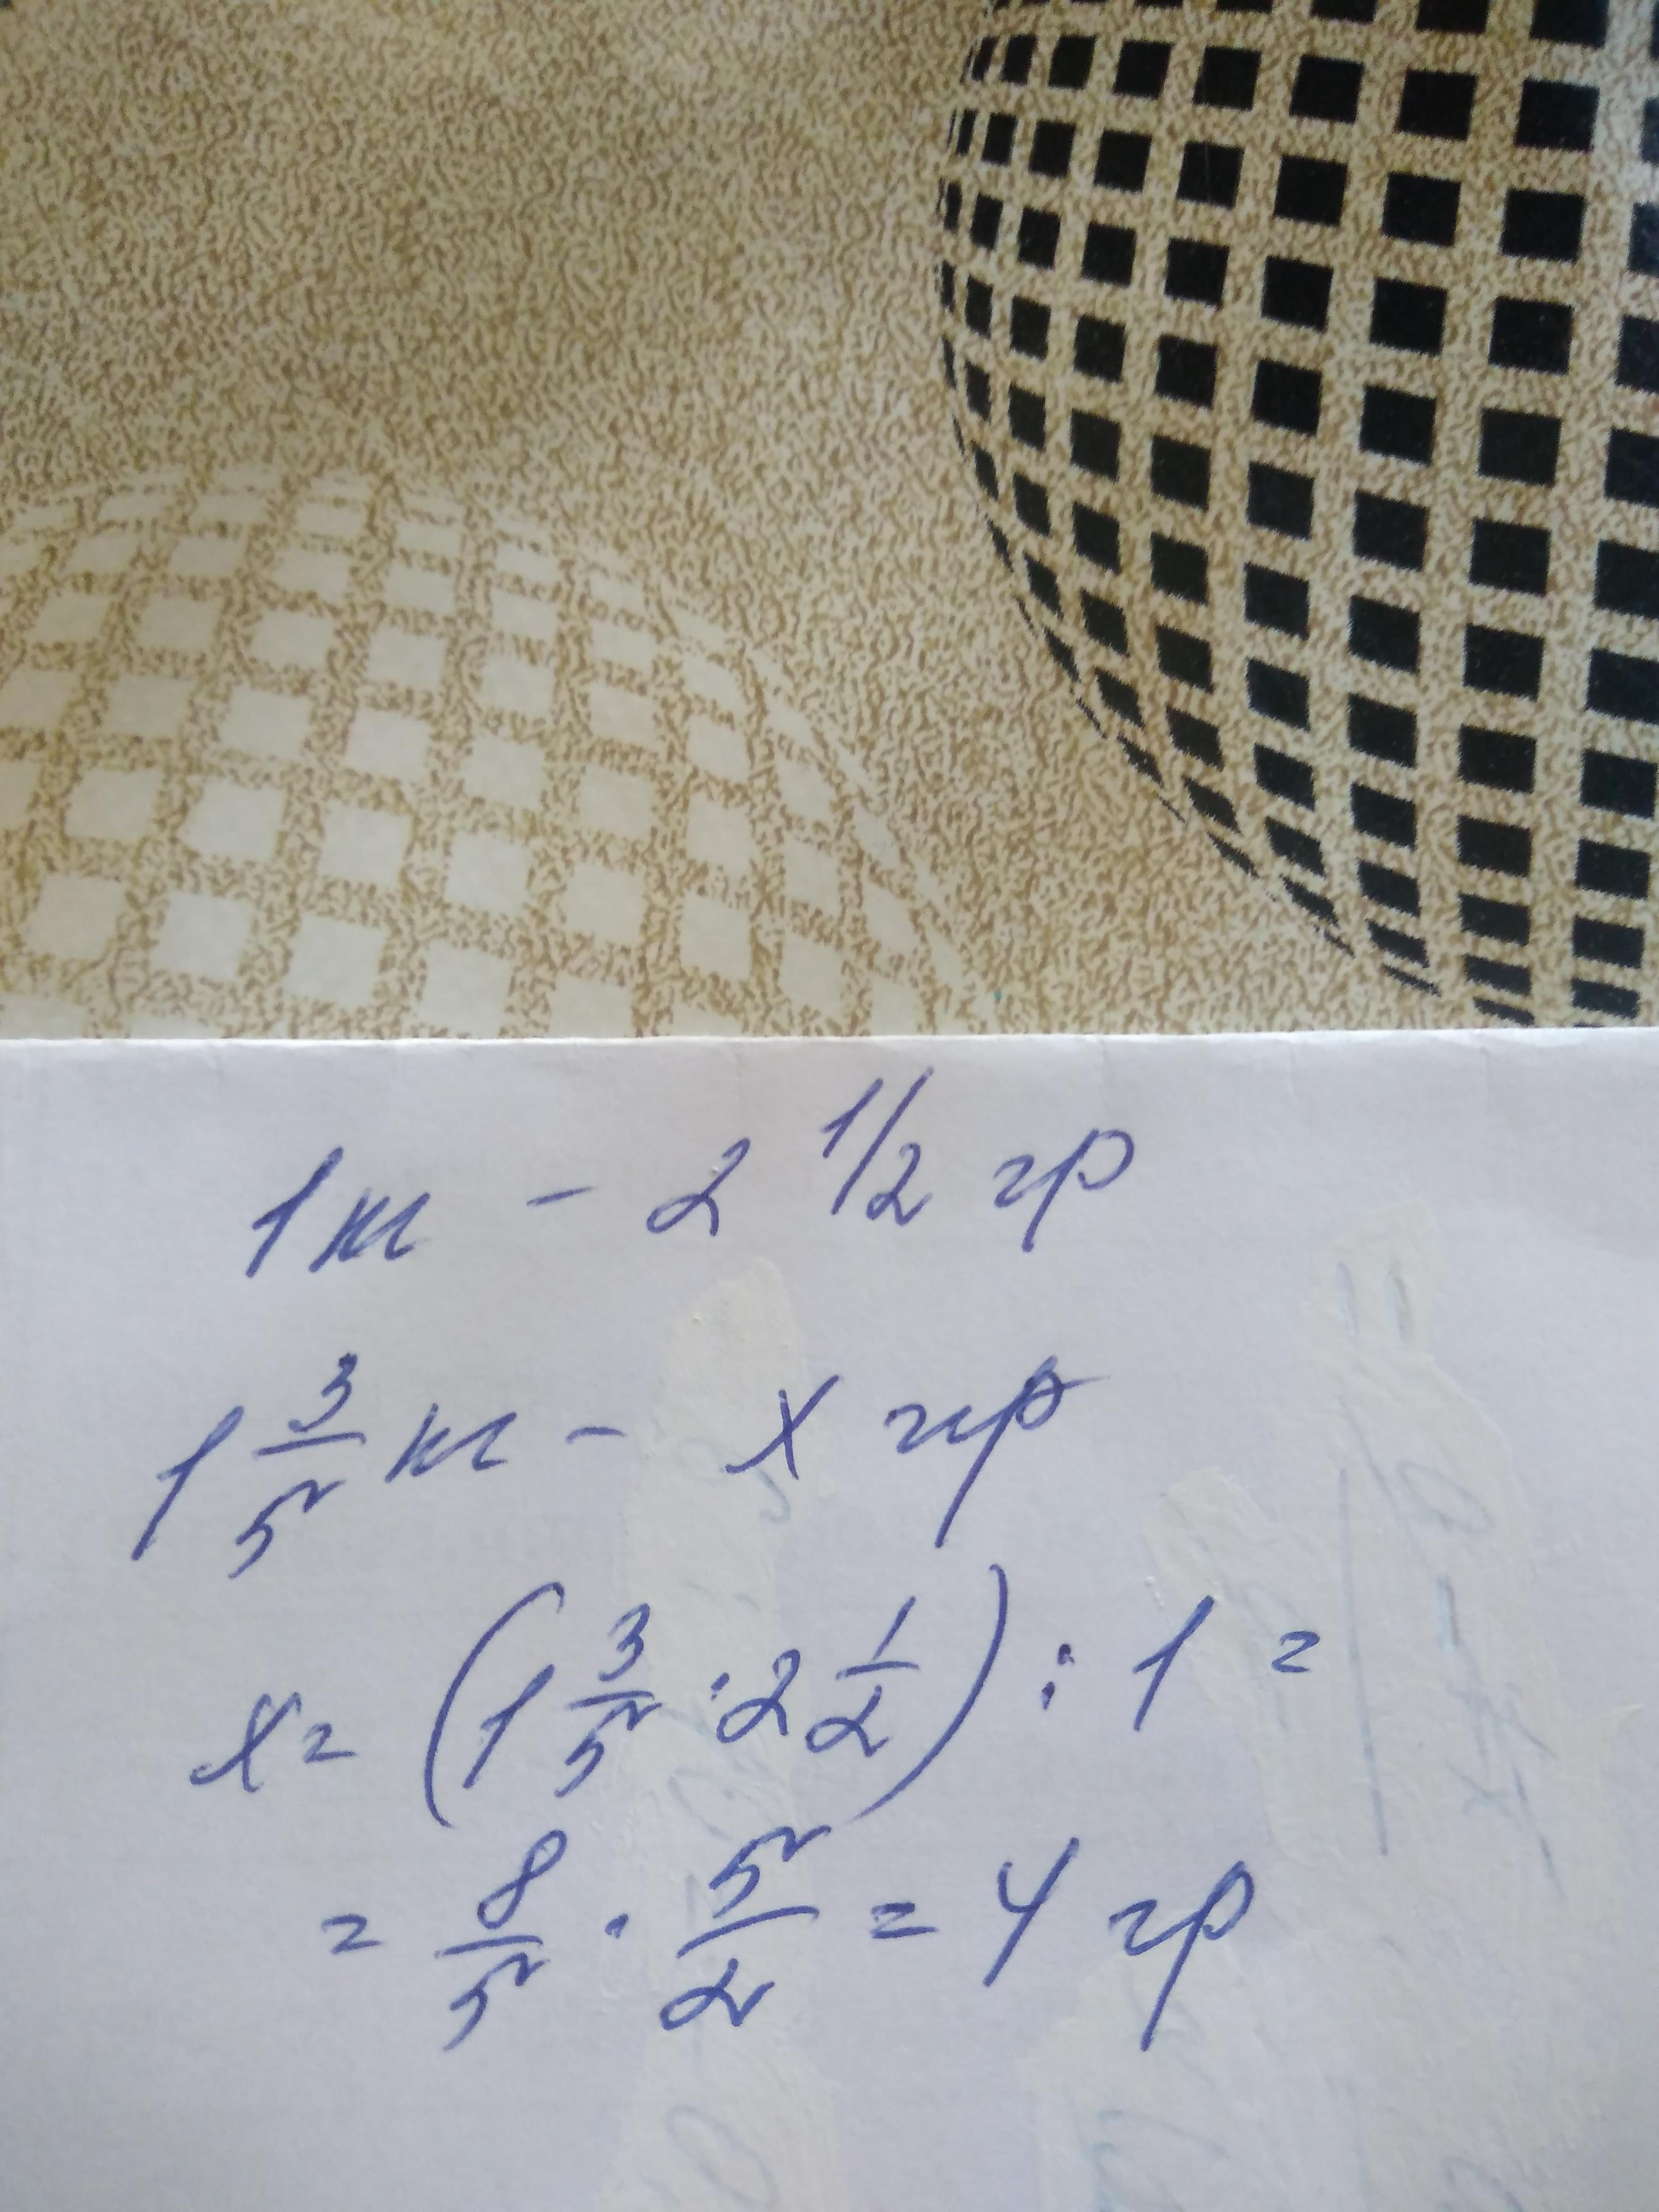 1м - 2 1/2 гр
1 3/5 м - x гр
x = (1 3/5 · 2 1/2) : 1 =
= 8/5 · 5/2 = 4 гр